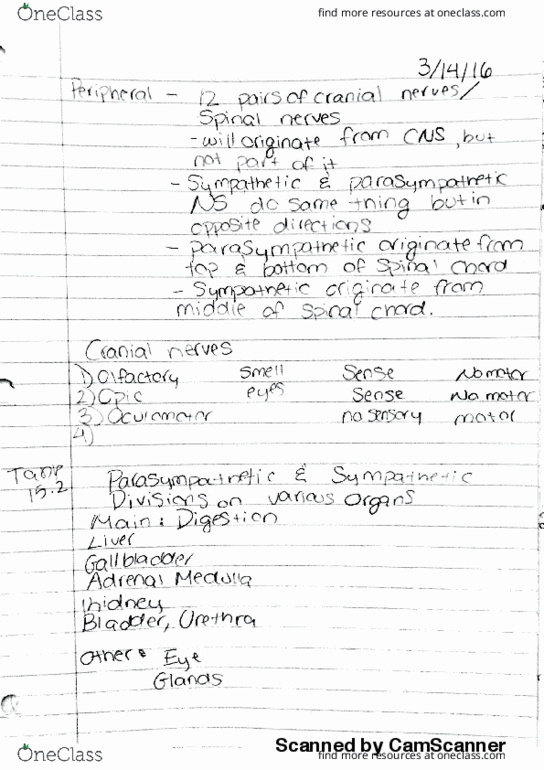 OneClass
find more resources at oneclass.com
3/14/16
Peripheral - 12 pairs of cranial nerves/
Spinal nerves
- will originate from CNS, but
not part of it
- Sympathetic & parasympathetic
NS do same thing but in
opposite directions
- parasympathetic originate from
top & bottom of spinal chord
- Sympathetic originate from
middle of spinal chord.
Cranial nerves
1) Olfactory smell Sense No motor
2) Opic eyes Sense No motor
3) Oculomotor no sensory motor
4)
Table
15.2
Parasympathetic & Sympathetic
Divisions on various Organs
Main: Digestion
Liver
Gallbladder
Adrenal Medulla
Kidney
Bladder, Urethra
Other: Eye
Glands
Scanned by CamScanner
OneClass
find more resources at oneclass.com